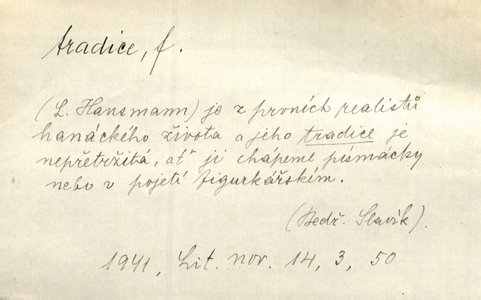 tradice, f.
(L. Hansmann) je z prvních realistů
hanáckého života a jeho tradice je
nepřetržitá, ať ji chápeme písmácky
nebo v pojetí figurkářském.
(Bedř. Slavík).
1941, Lit. nov. 14, 3, 50